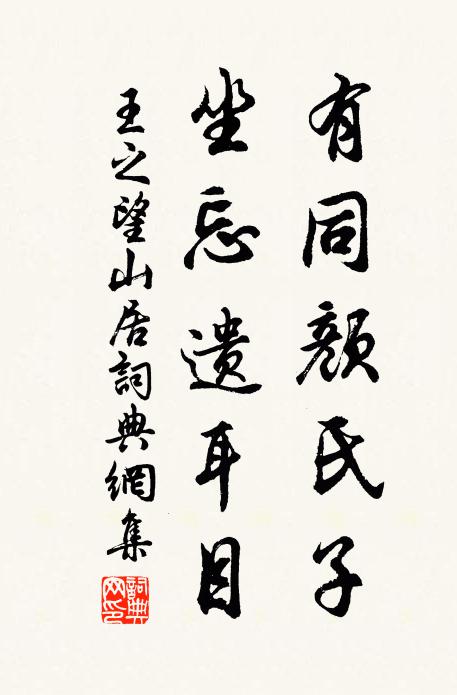 有同顏氏子
坐忘遺耳目
王之望山居詞典網集
詞典網印